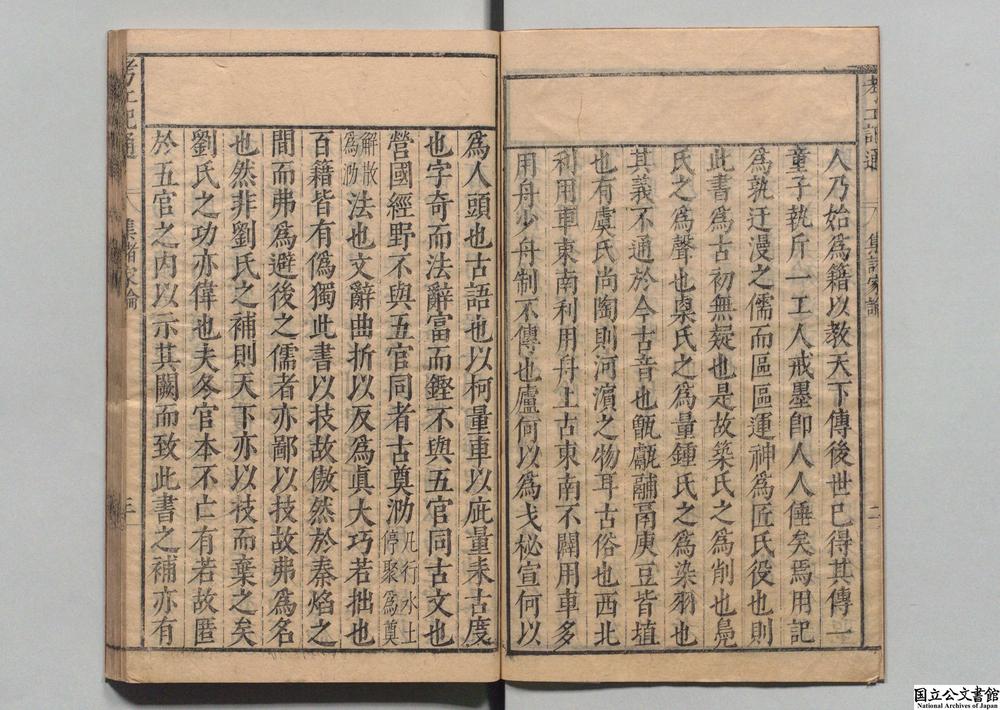 考工記通
八 集諸家論
二
人乃始為籍以教天下傳後世已得其傳一
童子執斤一工人戒墨卽人人倕矣焉用記
為孰迂漫之儒而區區運神為匠氏役也則
此書為古初無疑也是故築氏之為削也鳧
氏之為聲也㮚氏之為量鍾氏之為染羽也
其義不通於今古音也甑甗鬴鬲庾豆皆埴
也有虞氏尚陶則河濱之物耳古俗也西北
利用車東南利用舟上古東南不闢用車多
用舟少舟制不傳也廬何以為戈柲宣何以
為人頭也古語也以柯量車以庛量耒古度
也字奇而法辭富而鏗不與五官同古文也
營國經野不與五官同者古奠泐凡行水土停聚為奠
解散為泐法也文辭曲折以反為眞大巧若拙也
百籍皆有僞獨此書以技故傲然於秦焰之
間而弗為避後之儒者亦鄙以技故弗為名
也然非劉氏之補則天下亦以技而棄之矣
劉氏之功亦偉也夫冬官本不亡有若故匿
於五官之內以示其闕而致此書之補亦有
考工記通
八 集諸家論
三
国立公文書館
National Archives of Japan